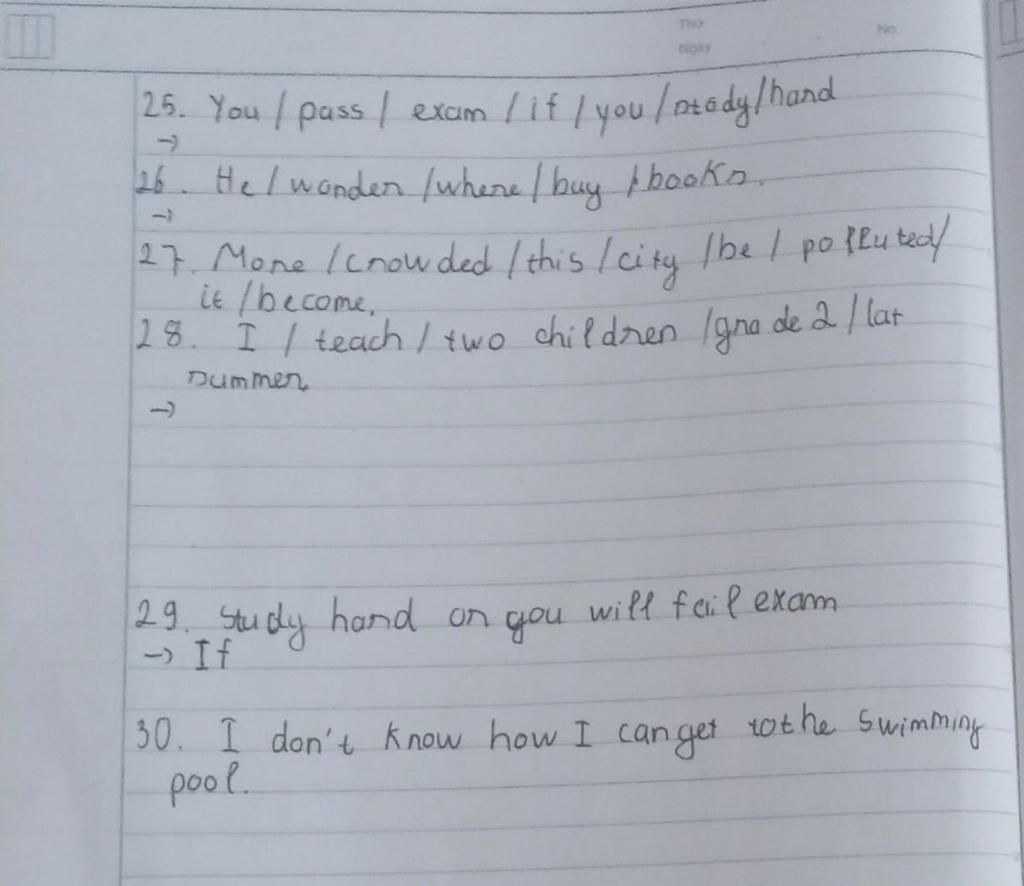 Thứ
No.
Ngày
25. You / pass / exam / if / you / stady / hard
→
26. He / wonder / where / buy / books.
→
27. More / crowded / this / city / be / polluted /
it / become.
28. I / teach / two children / grade 2 / lat
summer
→
29. Study hard or you will fail exam
→ If
30. I don't know how I can get to the swimming
pool.